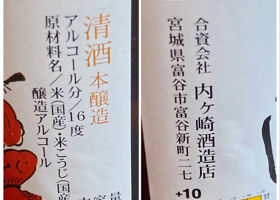 清酒 本醸造
アルコール分/16度
原材料名/米(国産)・米こうじ(国産)
醸造アルコール
内容量
合資会社 内ヶ崎酒造店
宮城県富谷市富谷新町二七
+10